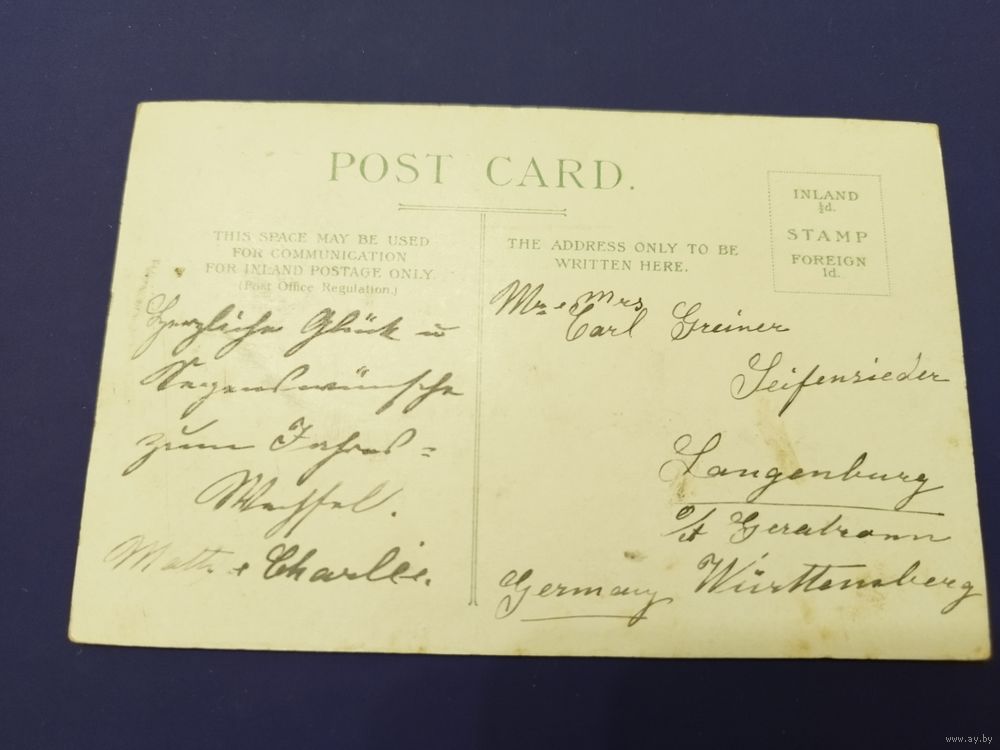 POST CARD.
INLAND
½d.
STAMP
FOREIGN
1d.
THIS SPACE MAY BE USED
FOR COMMUNICATION
FOR INLAND POSTAGE ONLY.
(Post Office Regulation.)
THE ADDRESS ONLY TO BE
WRITTEN HERE.
Herzliche Glück u
Segenswünsche
zum Jahres=
Wechsel.
Charlie.
Mr e Mrs
Carl Greiner
Seifensieder
Langenburg
Gerabronn
Germany Württemberg
www.ay.by